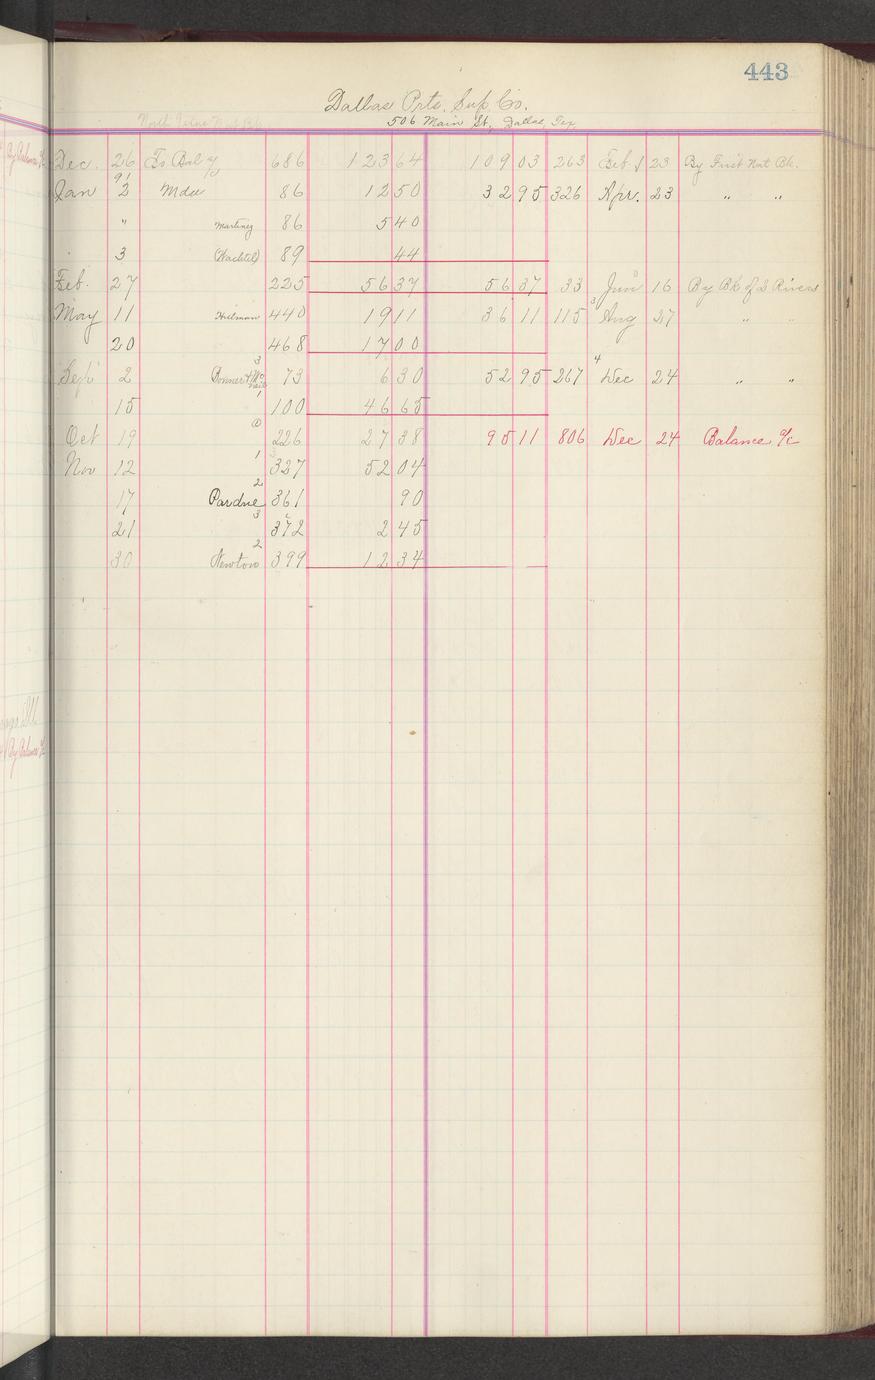 443
Dallas Prtg. Sup Co.
506 Main St., Dallas, Tex.
By Balance a/c
Dec. 26 To Bal 686 123 64 109 03 263 Feb 23 By First Nat Bk.
91
Jan 2 Mdse 86 12 50 32 95 326 Apr. 23 " "
" Martinez 86 5 40
3 (Wachtel) 89 44
Feb. 27 225 56 37 56 37 33 Jun 16 By Bk of 2 Rivers
May 11 Heilman 440 19 11 36 11 115 3 Aug 27 " "
20 468 17 00
Sept 2 3 73 6 30 52 95 267 4 Dec 24 " "
15 1 100 46 65
Oct 19 226 27 38 95 11 806 Dec 24 Balance a/c
Nov 12 1 327 52 04
17 2 Pardue 361 90
21 3 372 2 45
30 2 Newton 399 12 34
By Balance a/c